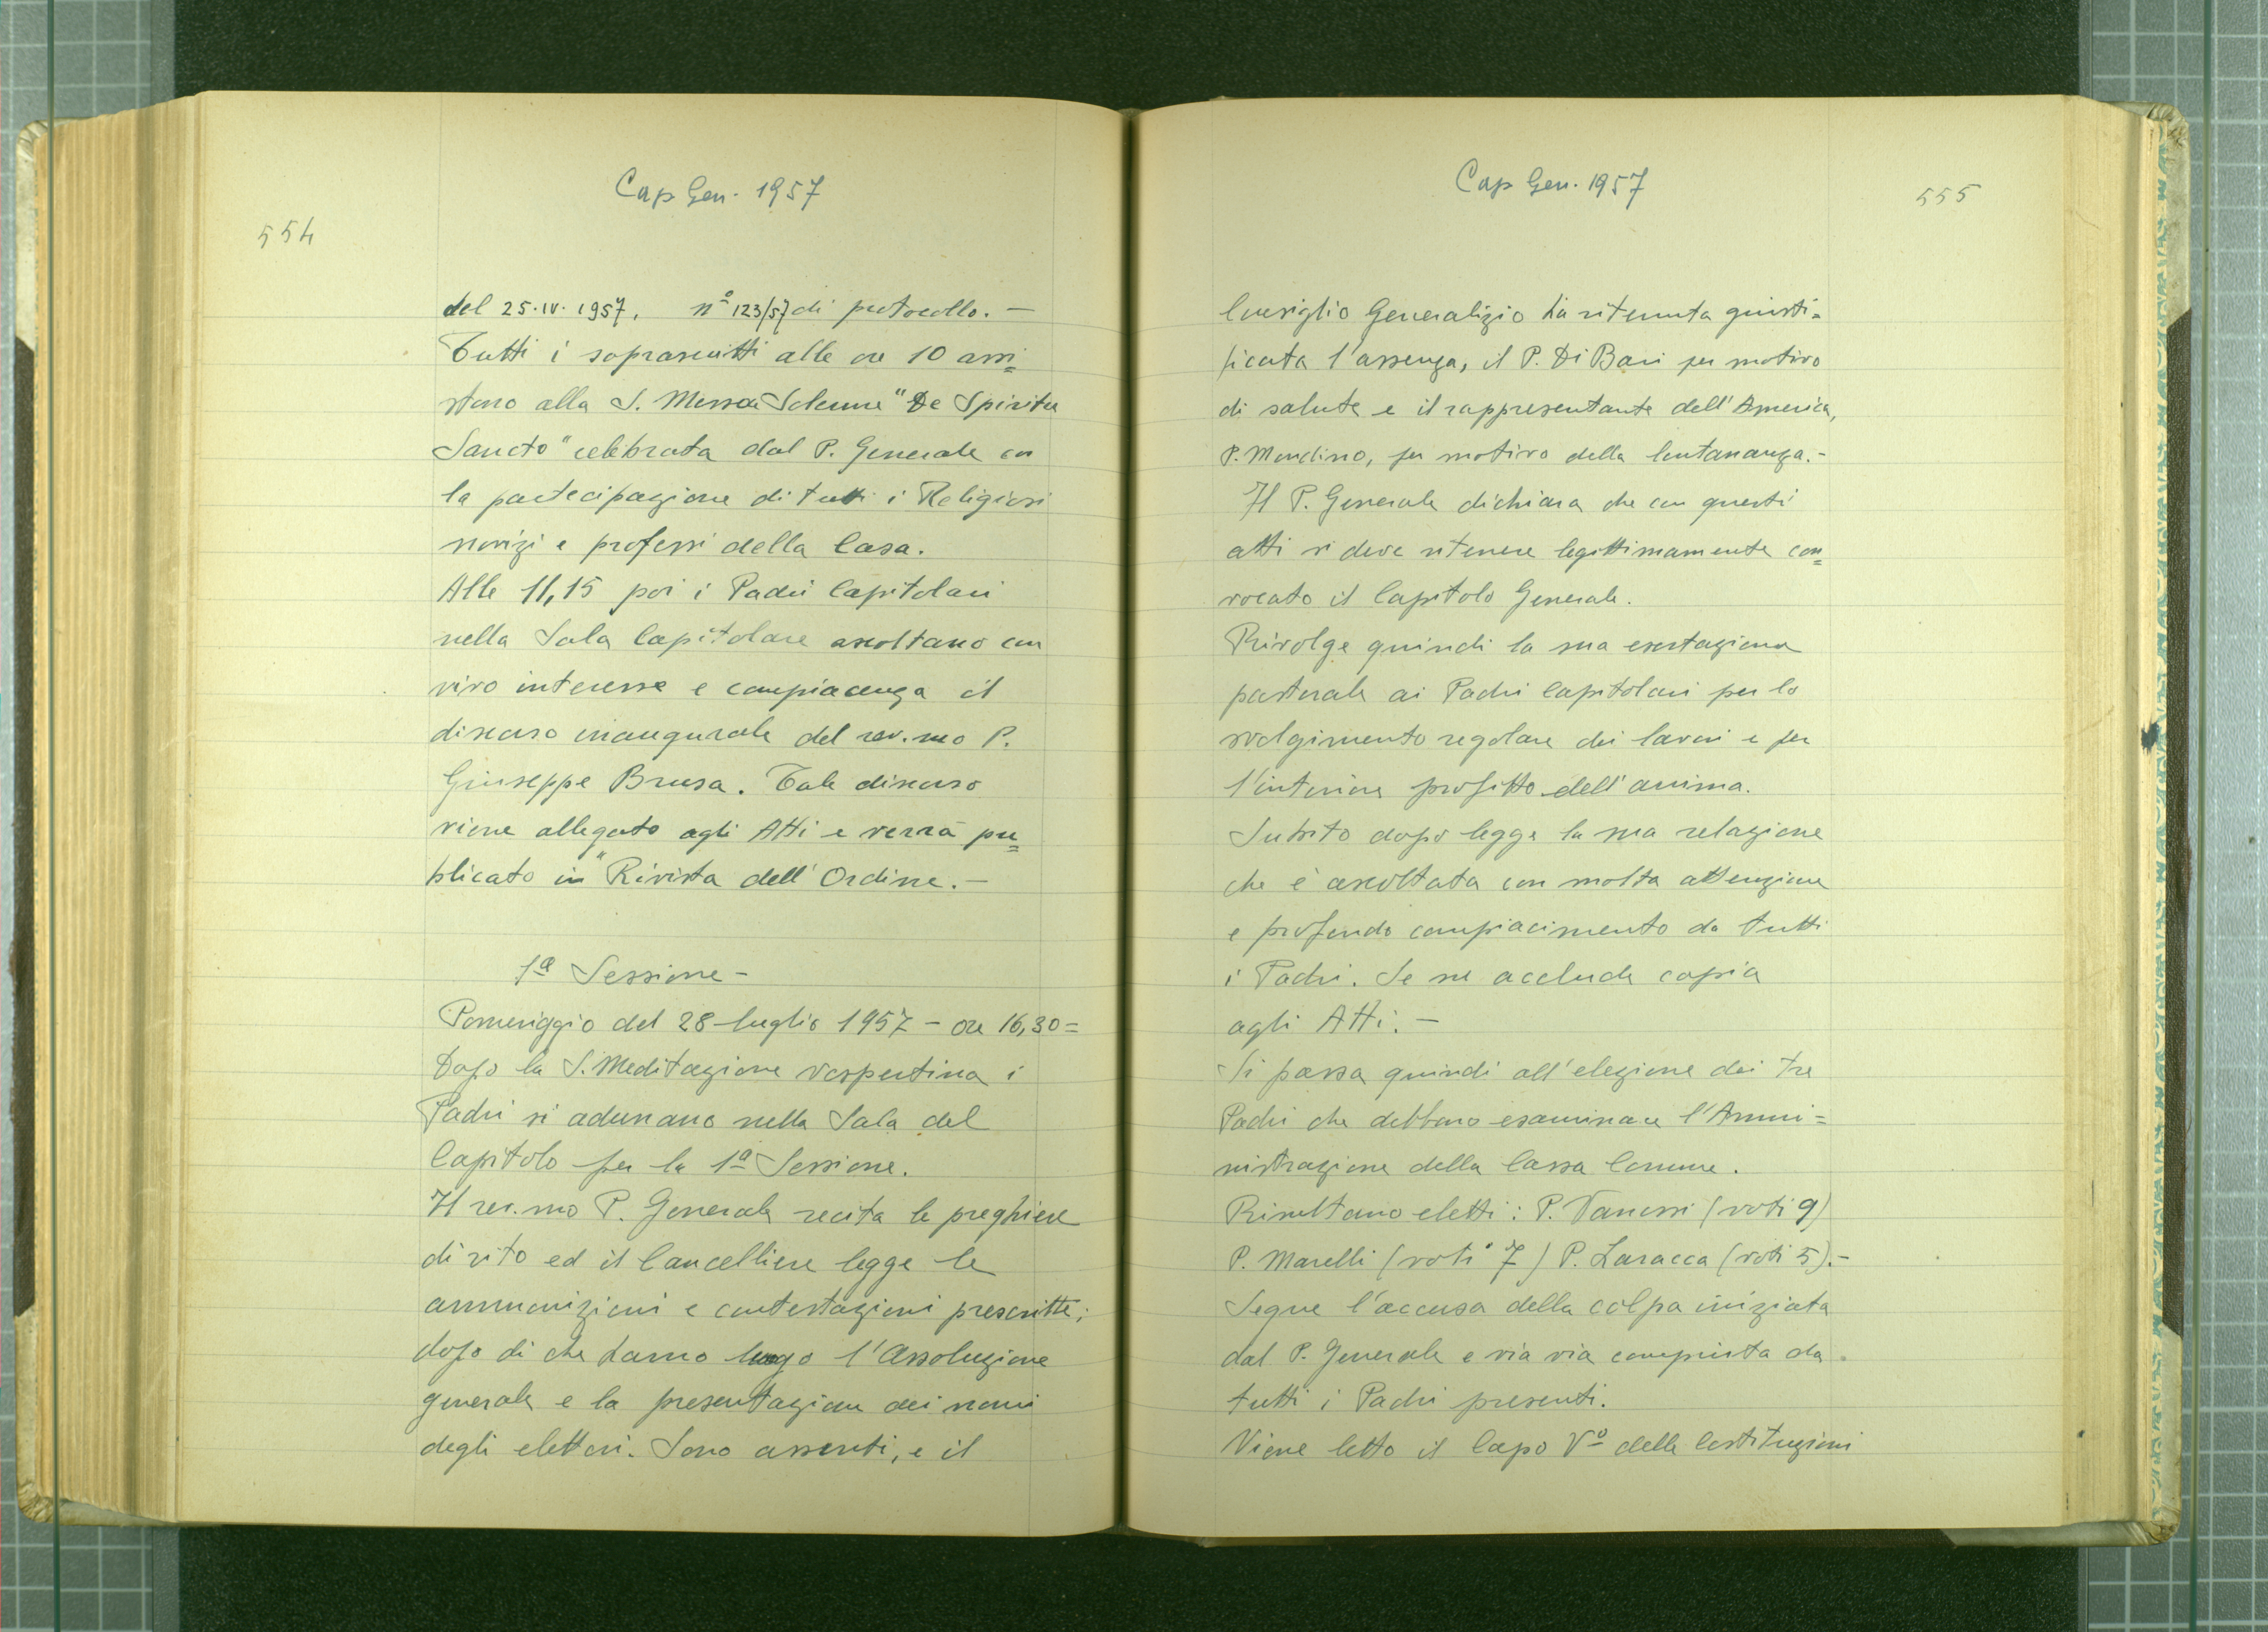 Cap Gen. 1957
554
del 25.IV.1957, nº 123/57 di protocollo. –
Tutti i soprascritti alle ore 10 assi=
stono alla S. Messa Solenne "De Spiritu
Sancto" celebrata dal P. Generale con
la partecipazione di tutti i Religiosi
novizi e professi della Casa.
Alle 11,15 poi i Padri Capitolari
nella Sala Capitolare ascoltano con
vivo interesse e compiacenza il
discorso inaugurale del rev.mo P.
Giuseppe Brusa. Tale discorso
viene allegato agli Atti e verrà pu=
blicato in "Rivista dell'Ordine. –
1ª Sessione –
Pomeriggio del 28 luglio 1957 – ore 16,30 =
Dopo la S. Meditazione vespertina i
Padri si adunano nella Sala del
Capitolo per la 1ª Sessione.
Il rev.mo P. Generale recita le preghiere
di rito ed il Cancelliere legge le
ammonizioni e contestazioni prescritte;
dopo di che hanno luogo l'Assoluzione
generale e la presentazione dei nomi
degli elettori. Sono assenti, e il
Cap Gen. 1957
555
Consiglio Generalizio ha ritenuta giusti=
ficata l'assenza, il P. Di Bari per motivo
di salute e il rappresentante dell'America,
P. Mondino, per motivo della lontananza. –
Il P. Generale dichiara che con questi
atti si deve ritenere legittimamente con=
vocato il Capitolo Generale.
Rivolge quindi la sua esortazione
pastorale ai Padri Capitolari per lo
svolgimento regolare dei lavori e per
l'interiore profitto dell'anima.
Subito dopo legge la sua relazione
che è ascoltata con molta attenzione
e profondo compiacimento da tutti
i Padri. Se ne acclude copia
agli Atti. –
Si passa quindi all'elezione dei tre
Padri che debbono esaminare l'Ammi=
nistrazione della Cassa Comune.
Risultano eletti: P. Vanossi (voti 9)
P. Marelli (voti 7) P. Laracca (voti 5). –
Segue l'accusa della colpa iniziata
dal P. Generale e via via compiuta da
tutti i Padri presenti.
Viene letto il Capo Vº delle Costituzioni